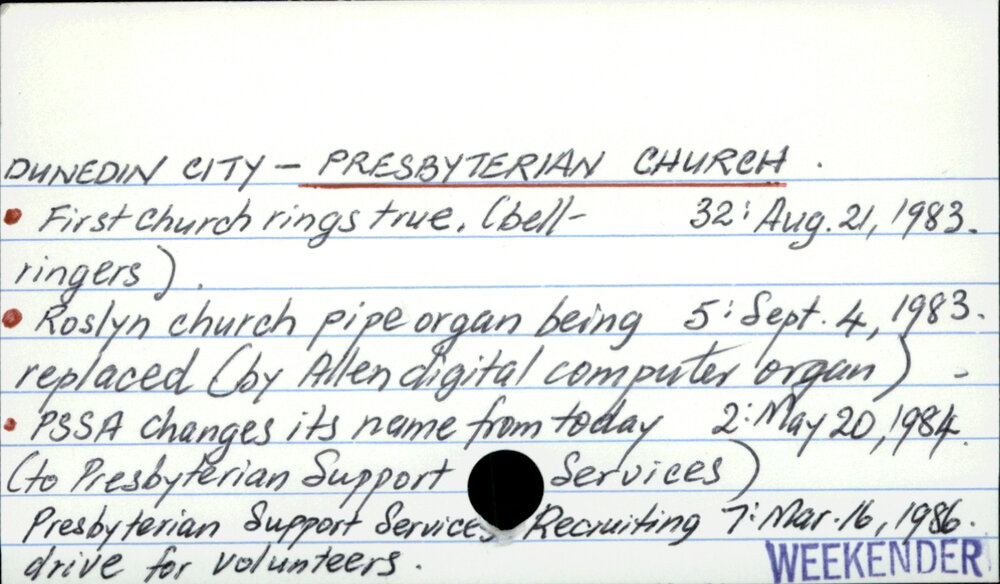 DUNEDIN CITY - PRESBYTERIAN CHURCH.
• First Church rings true. (bell- 32: Aug. 21, 1983.
ringers).
• Roslyn church pipe organ being 5: Sept. 4, 1983.
replaced (by Allen digital computer organ) -
• PSSA changes its name from today 2: May 20, 1984.
(to Presbyterian Support Services)
Presbyterian Support Services Recruiting 7: Mar. 16, 1986.
drive for volunteers.
WEEKENDER